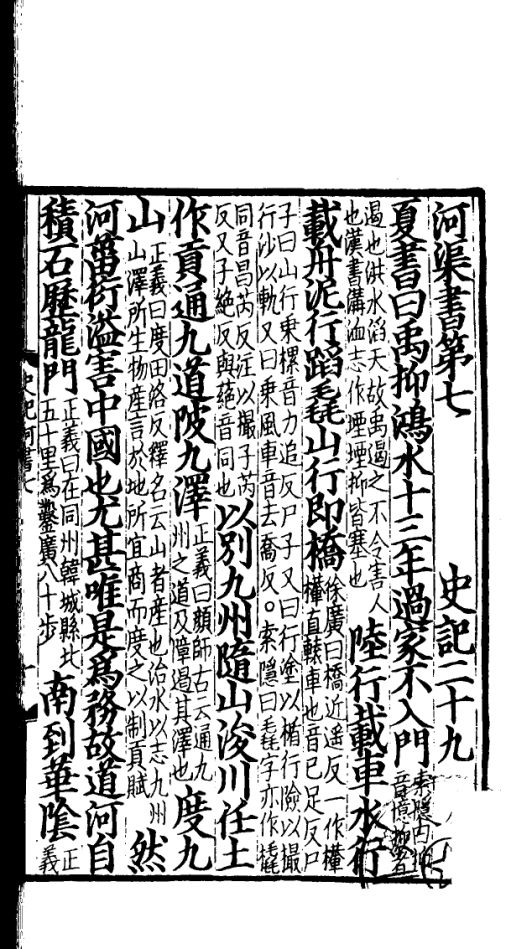 河渠書第七 史記二十九
夏書曰禹抑鴻水十三年過家不入門
遏也洪水滔天故禹遏之不令害人
也漢書溝洫志作堙堙抑皆塞也
陸行載車水行
載舟泥行蹈毳山行即橋
徐廣曰橋近遥反一作檋
檋直轅車也音已足反尸
子曰山行乗樏音力追反尸子又曰行塗以楯行險以撮
行沙以軌又曰乗風車音去喬反。索隱曰毳字亦作橇
同音昌芮反注以撮子芮
反又子絶反與蕝音同也
以别九州隨山浚川任土
作貢通九道陂九澤
正義曰顔師古云通九
州之道及障遏其澤也
度九
山
正義曰度田洛反釋名云山者産也治水以志九州
山澤所生物産言於地所宜商而度之以制貢賦
然
河菑衍溢害中國也尤甚唯是爲務故道河自
積石歷龍門
正義曰在同州韓城縣北
五十里爲鑿廣八十步
南到華隂
正
義